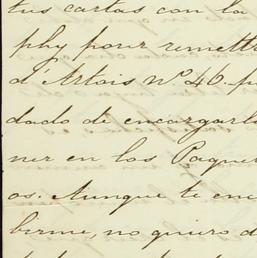 tus cartas con la
phy pour remett
d'Artois nº 46. p
dado de encargarl
ner en los Paque
os. Aunque te enc
berme, no quiero d